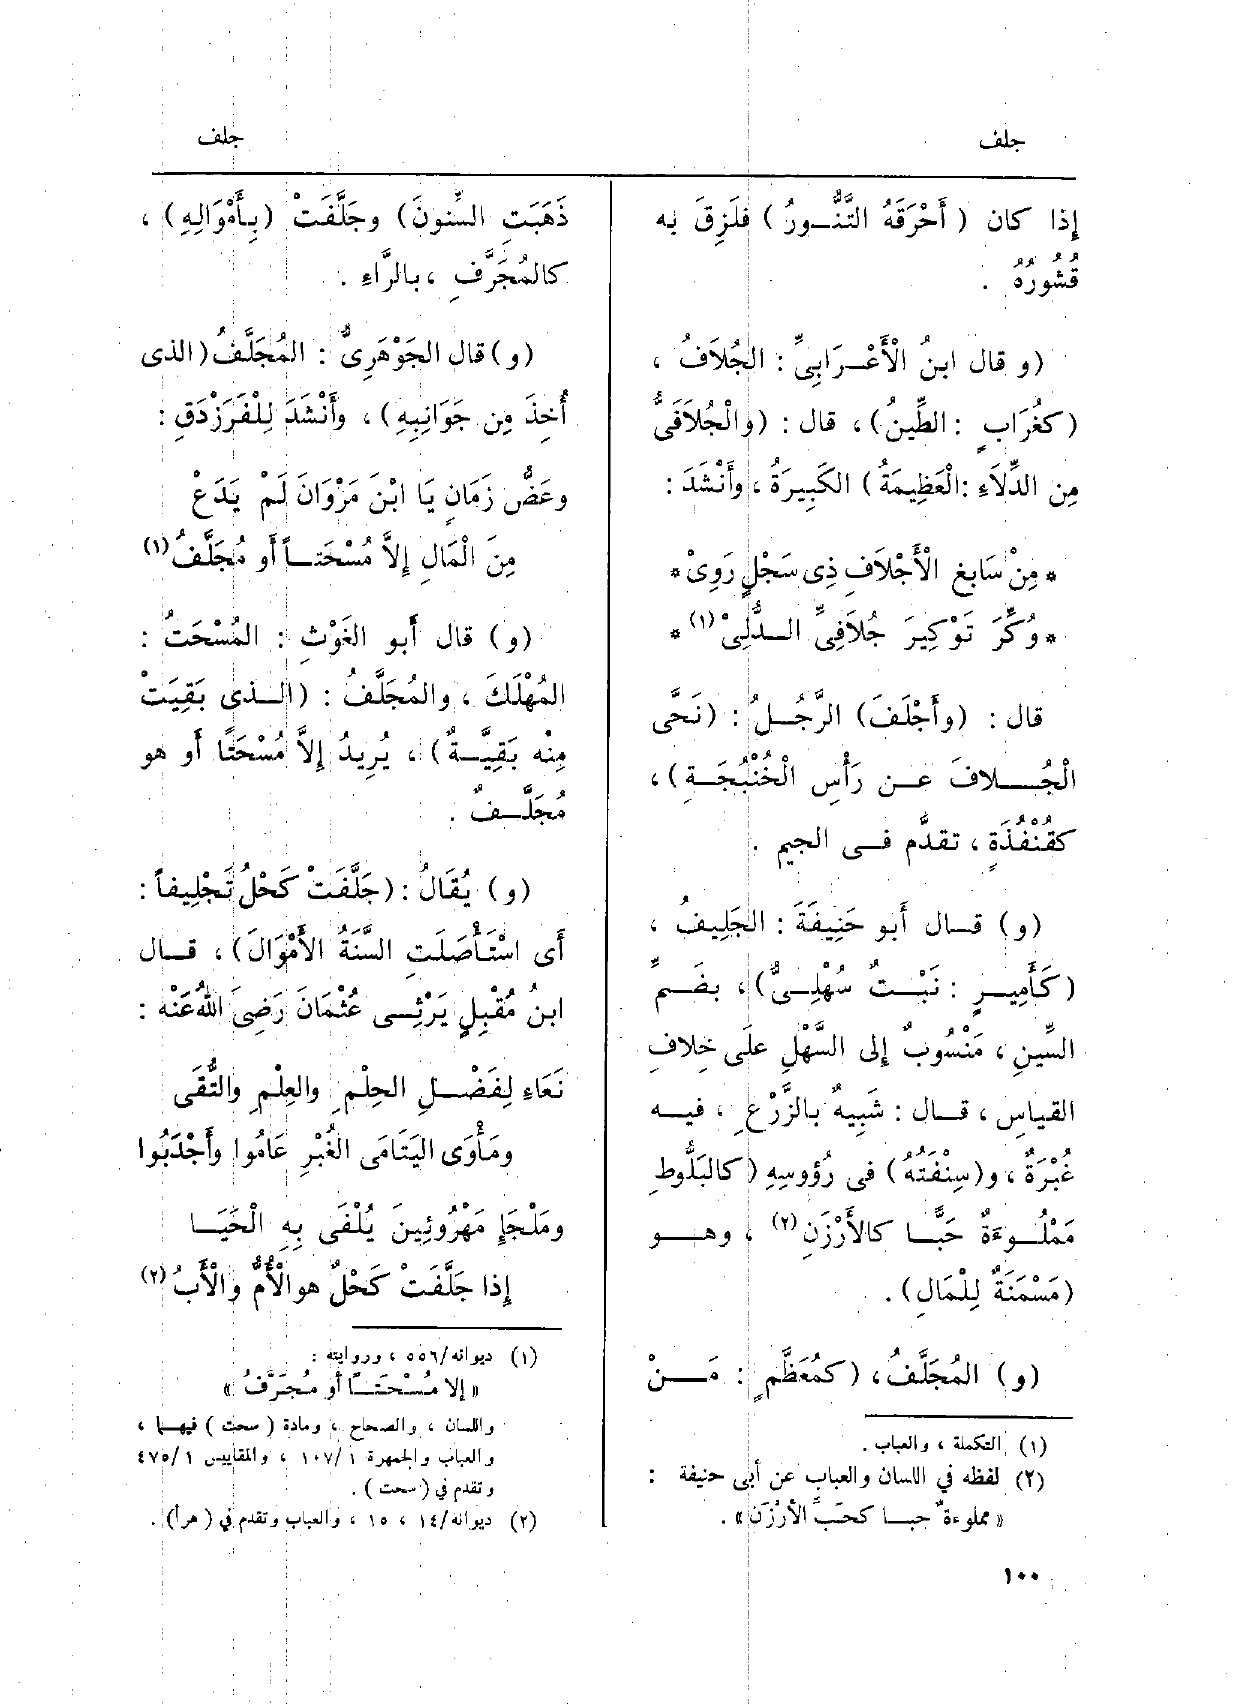 جلف
جلف
إذا كان (أَحْرَقَهُ التَّنُّورُ) فلَزِقَ به
قُشُورُهُ .
(و قال ابنُ الْأَعْرَابِىِّ : الجُلَافُ ،
(كغُرَابٍ : الطِّينُ) ، قال : (والْجُلَافَىُّ
مِن الدِّلَاءِ : الْعَظِيمَةُ) الكَبِيرَةُ ، وأَنْشَدَ :
* مِنْ سَابِغِ الْأَجْلَافِ ذِى سَجْلٍ رَوِىْ *
* وُكِّرَ تَوْكِيرَ جُلَافِىِّ الدُّلِىْ (١) *
قال : (وأَجْلَفَ) الرَّجُلُ : (نَحَّى
الْجُلافَ عن رَأْسِ الْخُنْبُجَةِ) ،
كقُنْفُذَةٍ ، تقدَّم فى الجيم .
(و) قال أَبو حَنِيفَةَ : الجَلِيفُ ،
(كَأَمِيرٍ : نَبْتٌ سُهْلِىٌّ) ، بضَمِّ
السِّينِ ، مَنْسُوبٌ إلى السَّهْلِ علَى خِلافِ
القياسِ ، قال : شَبِيهٌ بالزَّرْعِ ، فيه
غُبْرَةٌ ، و(سِنْفَتُهُ) فى رُؤوسِهِ (كالبَلُّوطِ
مَمْلُوءَةٌ حَبًّا كالأَرْزَنِ (٢) ، وهو
(مَسْمَنَةٌ لِلْمَالِ) .
(و) المُجَلَّفُ ، (كمُعَظَّمٍ : مَنْ
(١) التكملة ، والعباب .
(٢) لفظه في اللسان والعباب عن أبى حنيفة :
« مملوءةٌ حبا كحَبِّ الأرْزَن» .
ذَهَبَتِ السِّنونَ) وجَلَّفَتْ (بِأَمْوَالِهِ) ،
كالمُجَرَّفِ ، بالرَّاءِ .
(و) قال الجَوْهَرِىُّ : المُجَلَّفُ (الذى
أُخِذَ مِن جَوَانِبِهِ) ، وأَنْشَدَ لِلْفَرَزْدَقِ :
وعَضُّ زَمَانٍ يَا ابْنَ مَرْوَانَ لَمْ يَدَعْ
مِنَ الْمَالِ إِلاَّ مُسْحَتاً أَو مُجَلَّفُ (١)
(و) قال أَبو الغَوْثِ : المُسْحَتُ :
المُهْلَكَ ، والمُجَلَّفُ : (الذى بَقِيَتْ
مِنْه بَقِيَّةٌ) ، يُرِيدُ إِلاَّ مُسْحَتًا أَو هو
مُجَلَّفٌ .
(و) يُقَالُ : (جَلَّفَتْ كَحْلُ تَجْلِيفاً :
أَى اسْتَأْصَلَتِ السَّنَةُ الأَمْوَالَ) ، قال
ابنُ مُقْبِلٍ يَرْثِى عُثْمَانَ رَضِىَ اللهُ عَنْه :
نَعَاءِ لِفَضْلِ الحِلْمِ والعِلْمِ والتُّقَى
ومَأْوَى اليَتَامَى الغُبْرِ عَامُوا وأَجْدَبُوا
ومَلْجَإِ مَهْرُوئِينَ يُلْفَى بِهِ الْحَيَا
إِذا جَلَّفَتْ كَحْلٌ هو الْأُمُّ والْأَبُ (٢)
(١) ديوانه/٥٥٦ ، وروايته :
« إلا مُسْحَتاً أو مُجَرَّفُ »
واللسان ، والصحاح ، ومادة ( سحت ) فيهما ،
والعباب والجمهرة ١ /١٠٧ ، والمقاييس ١ /٤٧٥
وتقدم في ( سحت ) .
(٢) ديوانه/١٤ ، ١٥ ، والعباب وتقدم في ( هرأ ) .
١٠٠